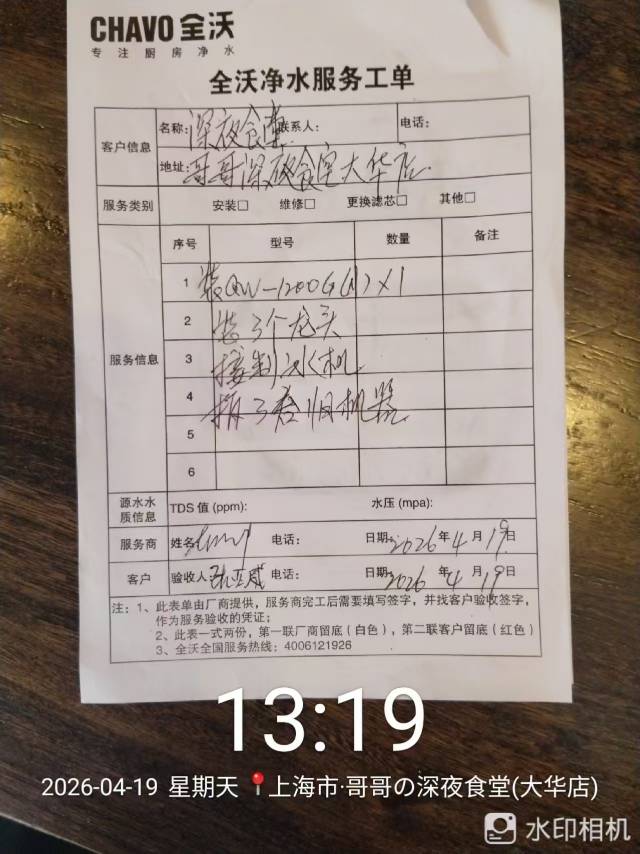 CHAVO 全沃
专注厨房净水
全沃净水服务工单
客户信息 名称: 深夜食堂 联系人: 电话:
地址: 哥哥深夜食堂大华店
服务类别 安装□ 维修□ 更换滤芯□ 其他□
服务信息 序号 型号 数量 备注
1 装QW-1200G(A)×1
2 装3个龙头
3 接制冰机
4 拆3套旧机器
5
6
源水水质信息 TDS 值 (ppm): 水压 (mpa):
服务商 姓名 电话: 日期: 2026 年 4 月 19 日
客户 验收人 电话: 日期: 2026 年 4 月 19 日
注: 1、此表单由厂商提供，服务商完工后需要填写签字，并找客户验收签字，
作为服务验收的凭证；
2、此表一式两份，第一联厂商留底（白色），第二联客户留底（红色）
3、全沃全国服务热线：4006121926
13:19
2026-04-19 星期天 上海市·哥哥の深夜食堂(大华店)
水印相机